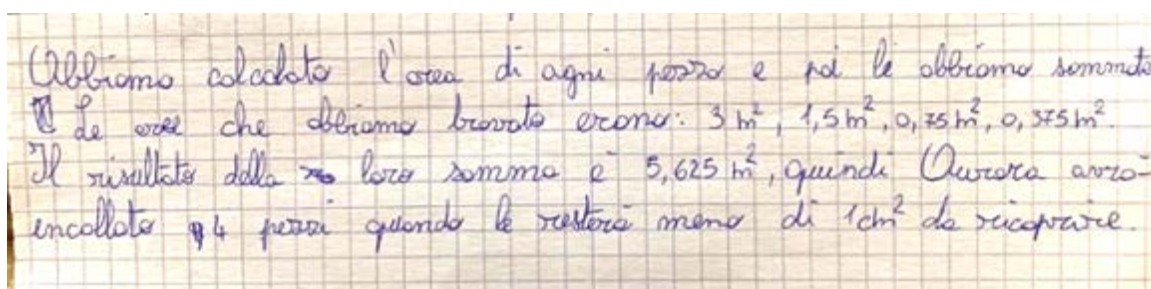 Abbiamo calcolato l'area di ogni pezzo e poi le abbiamo sommate
Le aree che abbiamo trovato erano: 3 m², 1,5 m², 0,75 m², 0,375 m².
Il risultato della loro somma è 5,625 m², quindi Aurora avrà
incollato 4 pezzi quando le resterà meno di 1dm² da ricoprire.